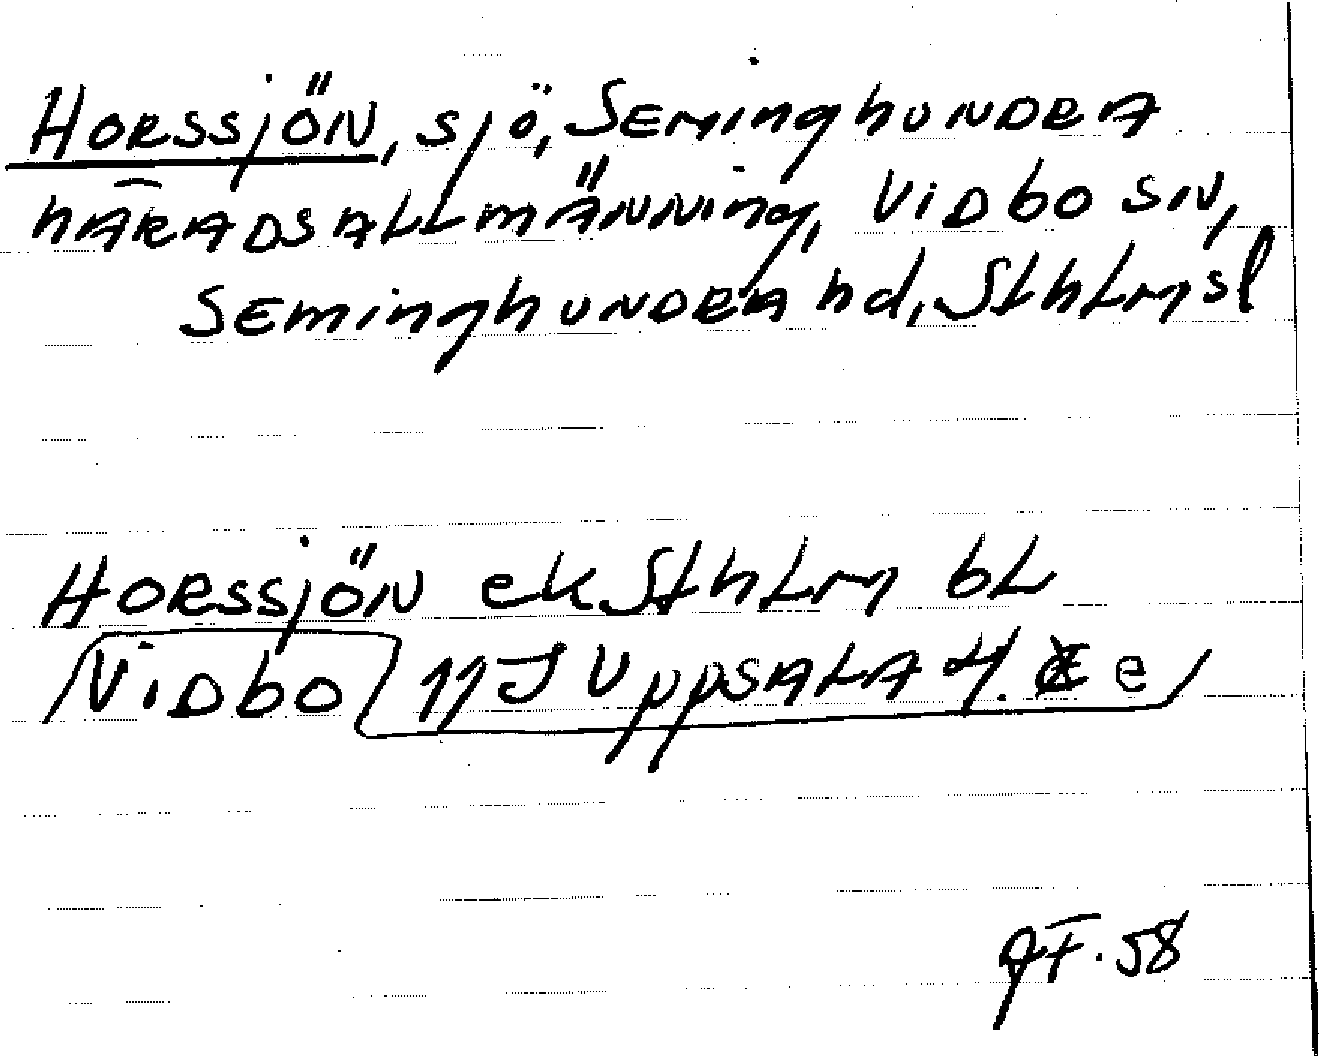 HORSSJÖN, sjö, Seminghundra
häradsallmänning, Vidbo sn,
Seminghundra hd, Sthlms l
HORSSJÖN ek Sthlm bl
Vidbo 11J Uppsala 4. e
GF. 58